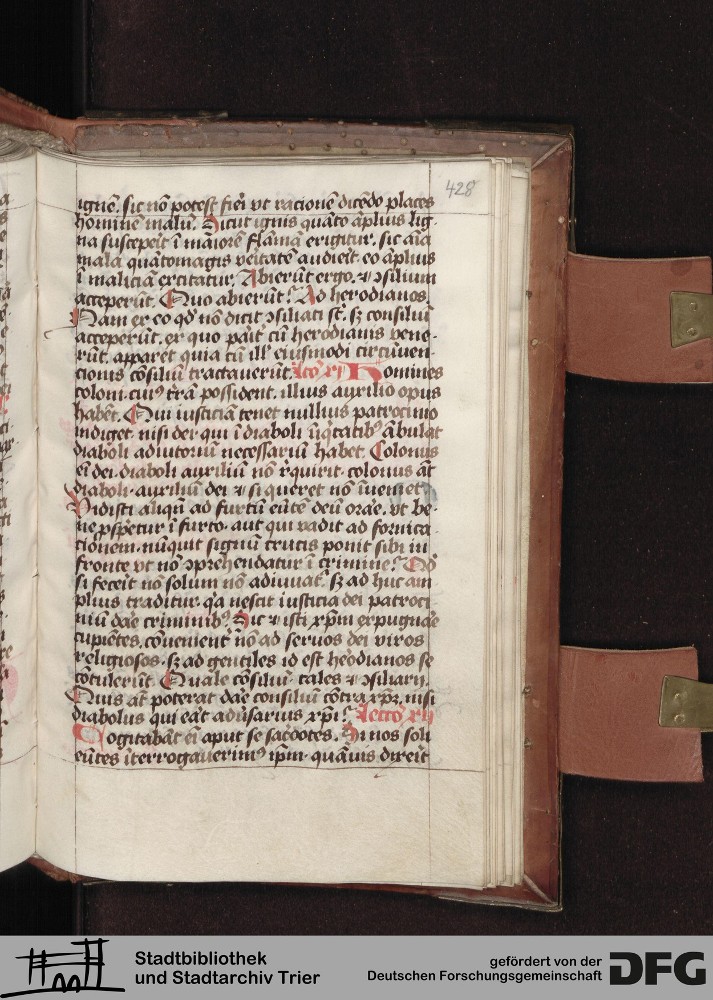 428
ignē. sic nō potest fieri vt racionē dicēdo places
hominē malū. Sicut ignis quāto āplius lig-
na susceperit ī maiorē flāmā erigitur. sic aīa
mala quātomagis veritatē audierit eo āplius
ī maliciā excitatur. Abierūt ergo. ⁊ ↄsilium
acceperūt. Quo abierūt? Ad herodianos.
Nam ex eo qd nō dicit ↄsiliati st. sz consiliū
acceperūt. ex quo parit cū herodianis vene-
rūt. apparet quia cū ill' eiusmodi circūuen-
cionis cōsiliū tractauerūt. lcō xi Homines
coloni cuiꝰ trā possident. illius auxilio opus
habēt. Qui iusticiā tenet nullius patrocinio
indiget. nisi dei. qui ī diaboli iīqtatibꝰ ābulat
diaboli adiutoriū necessariū habet. Colonus
eī dei. diaboli auxiliū nō rquirit. colonus āt
diaboli. auxiliū dei ⁊ si queret nō īueniet
Vidisti aliqū ad furtū eūtē deū orāe. vt be-
ne psperetur ī furto. aut qui vadit ad fornica-
cionem. nūquit signū crucis ponit sibi in
fronte vt nō ↄprehendatur ī crimine? Qd
si fecerit nō solum nō adiuuat. sz ad huc am-
plius traditur. qa nescit iusticia dei patroci-
niū dāe criminibꝰ. Sic ⁊ isti xpm expugnāe
cupiētes. cōuenierūt nō ad seruos dei viros
religiosos. sz ad gentiles id est herodianos se
cōtulerūt. Quale cōsiliū. tales ⁊ ↄsiliarii.
Quis āt poterat dāe consiliū cōtra xpm. nisi
diabolus qui erat adūsarius xpi? lectō xii
Cogitabāt eī aput se sacdotes. Si nos soli
eūtes īterrogauerimꝰ ipm. quāuis dixerit
Stadtbibliothek
und Stadtarchiv Trier
gefördert von der
Deutschen Forschungsgemeinschaft
DFG